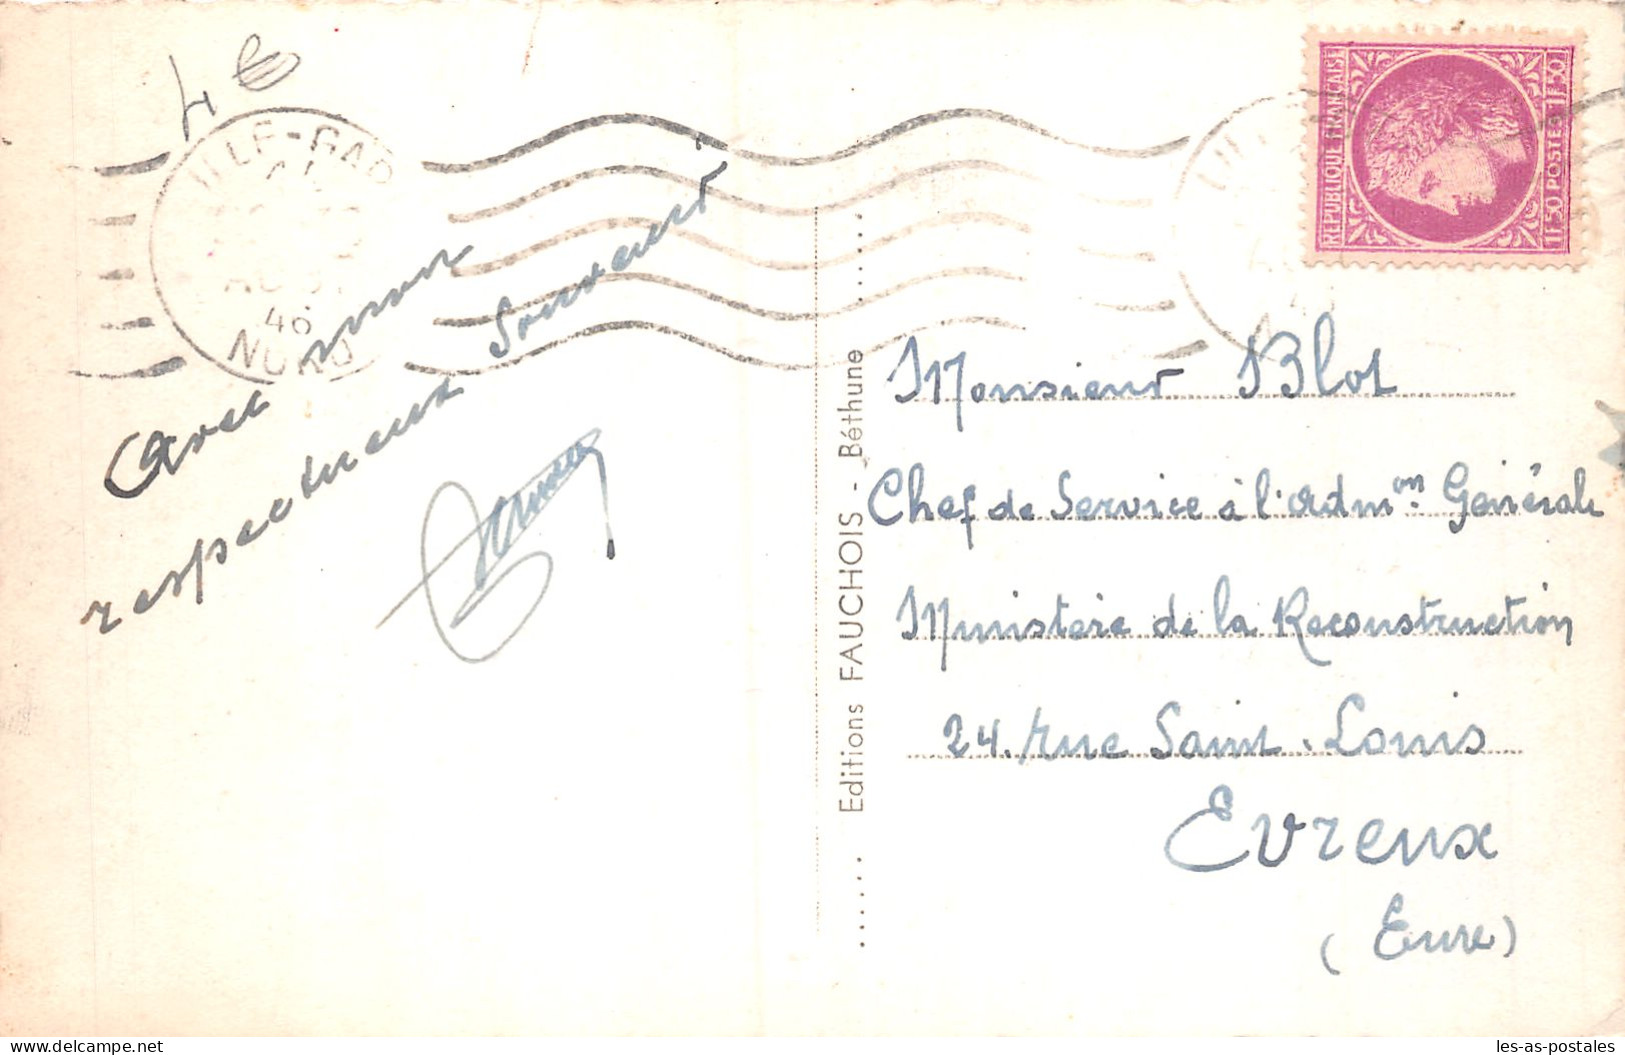 4€
LILLE-GARE
AOUT
46
NORD
Avec mon
respectueux Souvenir
Editions FAUCHOIS - Béthune
REPUBLIQUE FRANÇAISE
1F50 POSTES 1F50
Monsieur Blot
Chef de Service à l'Admon Générale
Ministère de la Reconstruction
24. rue Saint-Louis
Evreux
(Eure)
les-as-postales
www.delcampe.net